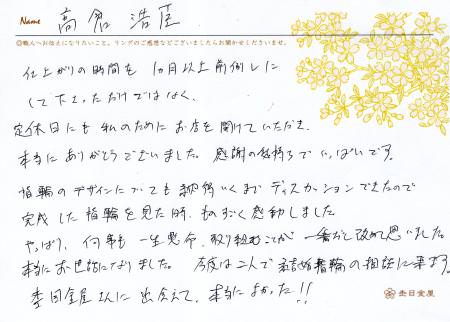 Name 高倉 浩臣
◎職人へお伝えになりたいこと、リングのご感想などございましたらお聞かせくださいませ。
仕上がりの時間を 1ヵ月以上前倒しに
して下さっただけではなく、
定休日にも私のためにお店を開けていただき、
本当にありがとうございました。感謝の気持ちでいっぱいです。
指輪のデザインについても納得いくまでディスカッションできたので
完成した指輪を見た時、ものすごく感動しました
やっぱり、何事も一生懸命、取り組むことが一番だと改めて思いました。
本当にお世話になりました。今度は二人で結婚指輪の相談に来ます。
杢目金屋さんに出会えて、本当によかった!!
杢目金屋